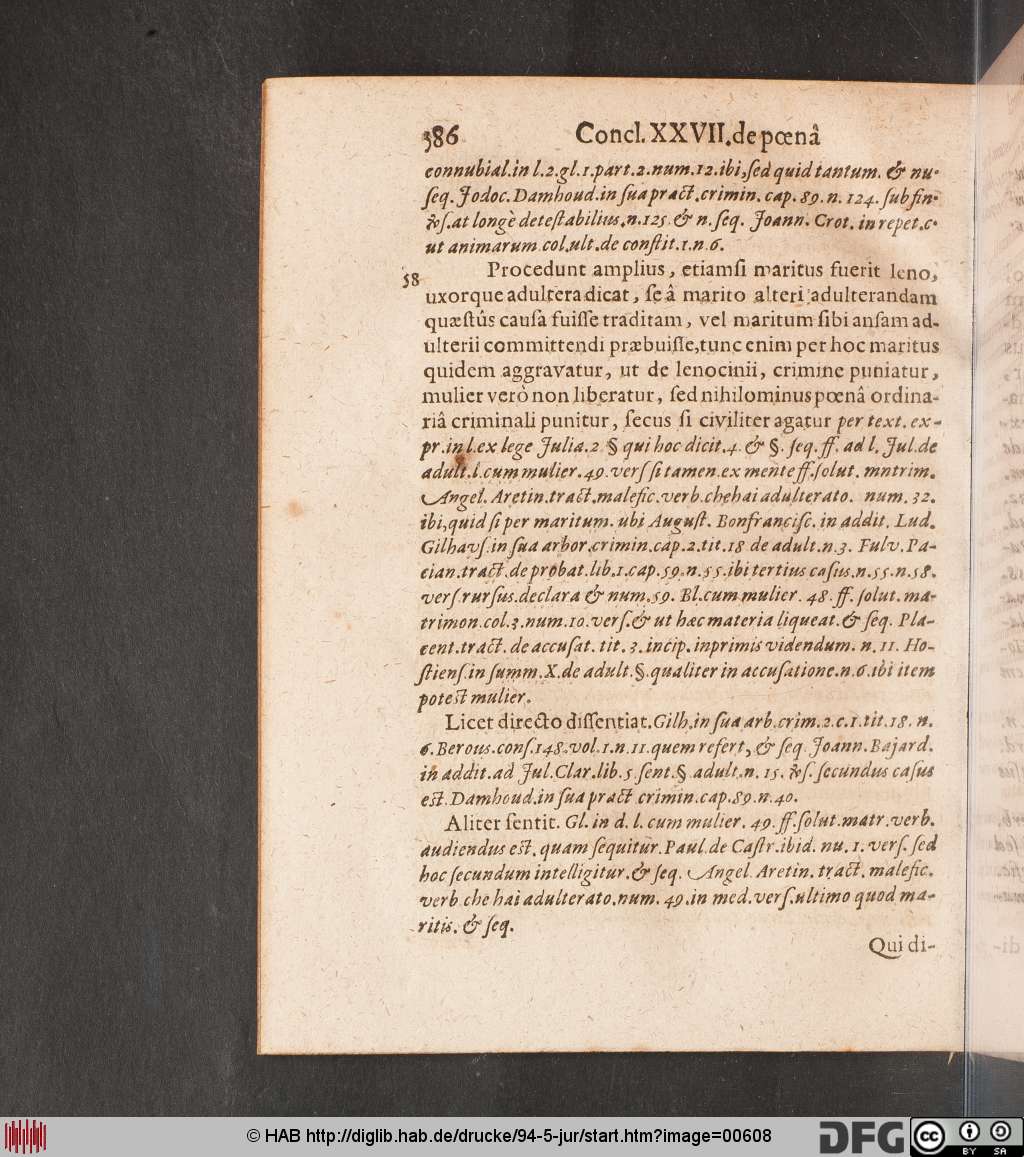 386 Concl. XXVII. de pœnâ
connubial. in l. 2. gl. 1. part. 2. num. 12. ibi, ſed quid tantum. & nu.
ſeq. Jodoc. Damhoud. in ſua pract. crimin. cap. 89. n. 124. ſub fin.
&ſ. at longè deteſtabilius. n. 125 & n. ſeq. Joann. Crot. in repet. c.
ut animarum col. ult. de conſtit. 1. n. 6.
58 Procedunt amplius, etiamſi maritus fuerit leno,
uxorque adultera dicat, ſe â marito alteri adulterandam
quæſtûs cauſa fuiſſe traditam, vel maritum ſibi anſam ad-
ulterii committendi præbuiſſe, tunc enim per hoc maritus
quidem aggravatur, ut de lenocinii, crimine puniatur,
mulier verò non liberatur, ſed nihilominus pœnâ ordina-
riâ criminali punitur, ſecus ſi civiliter agatur per text. ex-
pr. in l. ex lege Julia. 2 § qui hoc dicit. 4. & §. ſeq. ff. ad l. Jul. de
adult. l. cum mulier. 49. verſ ſi tamen. ex mente ff. ſolut. mntrim.
Angel. Aretin. tract. malefic. verb. chehai adulterato. num. 32.
ibi, quid ſi per maritum. ubi Auguſt. Bonfranciſc. in addit. Lud.
Gilhauſ. in ſua arbor. crimin. cap. 2. tit. 18 de adult. n. 3. Fulv. Pa-
cian. tract. de probat. lib. 1. cap. 59. n. 55. ibi tertius caſus. n. 55. n. 58.
verſ. rurſus. declara & num. 59. Bl. cum mulier. 48. ff. ſolut. ma-
trimon. col. 3. num. 10. verſ. & ut hæc materia liqueat. & ſeq. Pla-
cent. tract. de accuſat. tit. 3. incip. inprimis videndum. n. 11. Ho-
ſtienſ. in ſumm. X. de adult. §. qualiter in accuſatione. n. 6. ibi item
poteſt mulier.
Licet directo diſſentiat. Gilh. in ſua arb. crim. 2. c. 1. tit. 18. n.
6. Berous. conſ. 148. vol. 1. n. 11. quem refert, & ſeq. Joann. Bajard.
in addit. ad Jul. Clar. lib. 5. ſent. § adult. n. 15. &ſ. ſecundus caſus
eſt. Damhoud. in ſua pract crimin. cap. 89. n. 40.
Aliter ſentit. Gl. in d. l. cum mulier. 49. ff. ſolut. matr. verb.
audiendus eſt. quam ſequitur. Paul. de Caſtr. ibid. nu. 1. verſ. ſed
hoc ſecundum intelligitur. & ſeq. Angel. Aretin. tract. malefic.
verb. che hai adulterato. num. 49. in med. verſ. ultimo quod ma-
ritis. & ſeq.
Qui di-
© HAB http://diglib.hab.de/drucke/94-5-jur/start.htm?image=00608
DFG cc BY SA